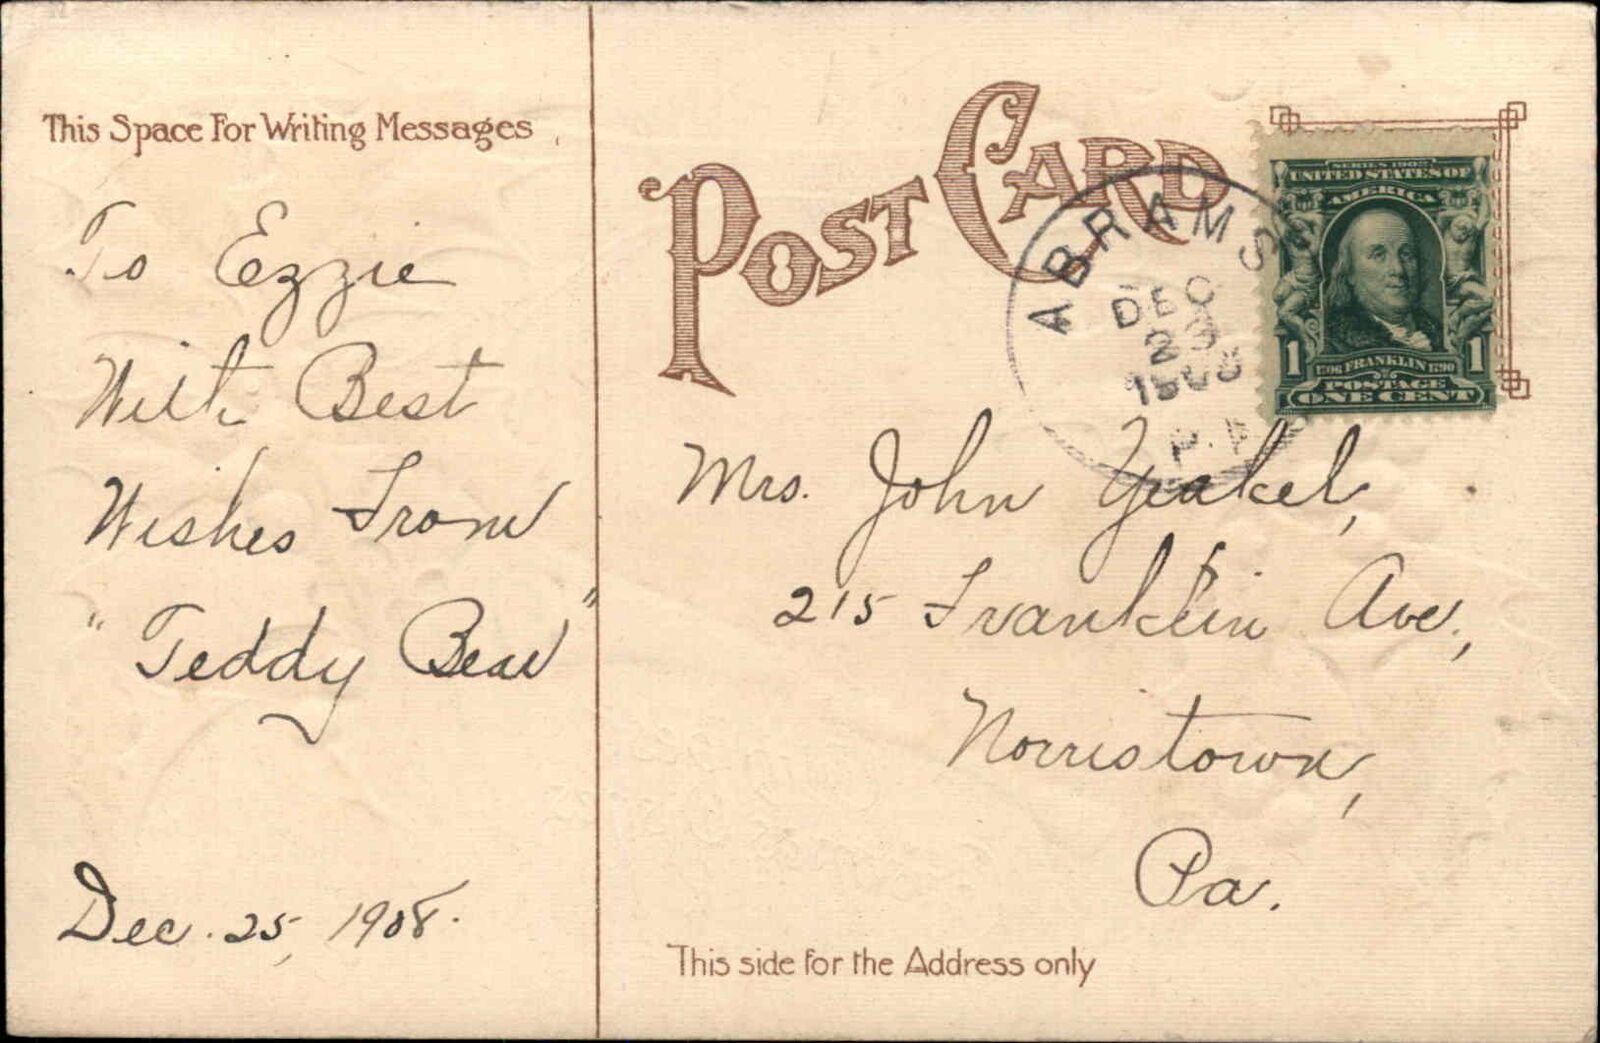 This Space For Writing Messages
To Ezzie
With Best
Wishes From
"Teddy Bear"
Dec. 25, 1908.
POST CARD
ABRAMS
DEC
23
1908
P.A
SERIES 1902
UNITED STATES OF
AMERICA
1706 FRANKLIN 1790
1 1
POSTAGE
ONE CENT
Mrs. John Yeakel,
215 Franklin Ave.,
Norristown,
Pa.
This side for the Address only